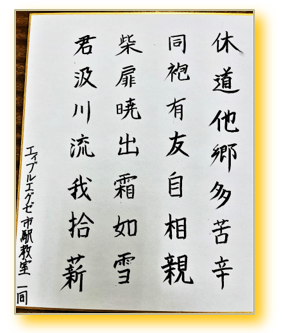 休道他郷多苦辛
同袍有友自相親
柴扉暁出霜如雪
君汲川流我拾薪
エイブルエクゼ市駅教室一同